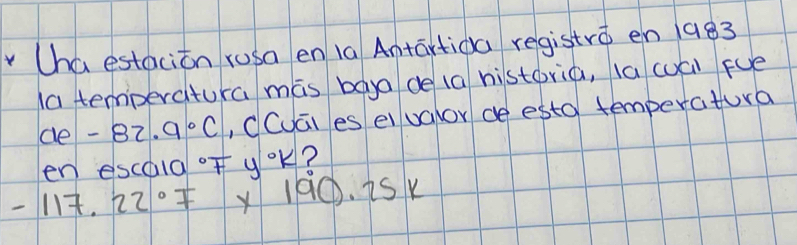 * Una estación rusa en la Antártida registró en 1983
la temperatura más baja de la historia, la cual fue
de -82.9°C, ¿Cuál es el valor de esta temperatura
en escala °F y °K?
- 117.22°F y 190.25 K